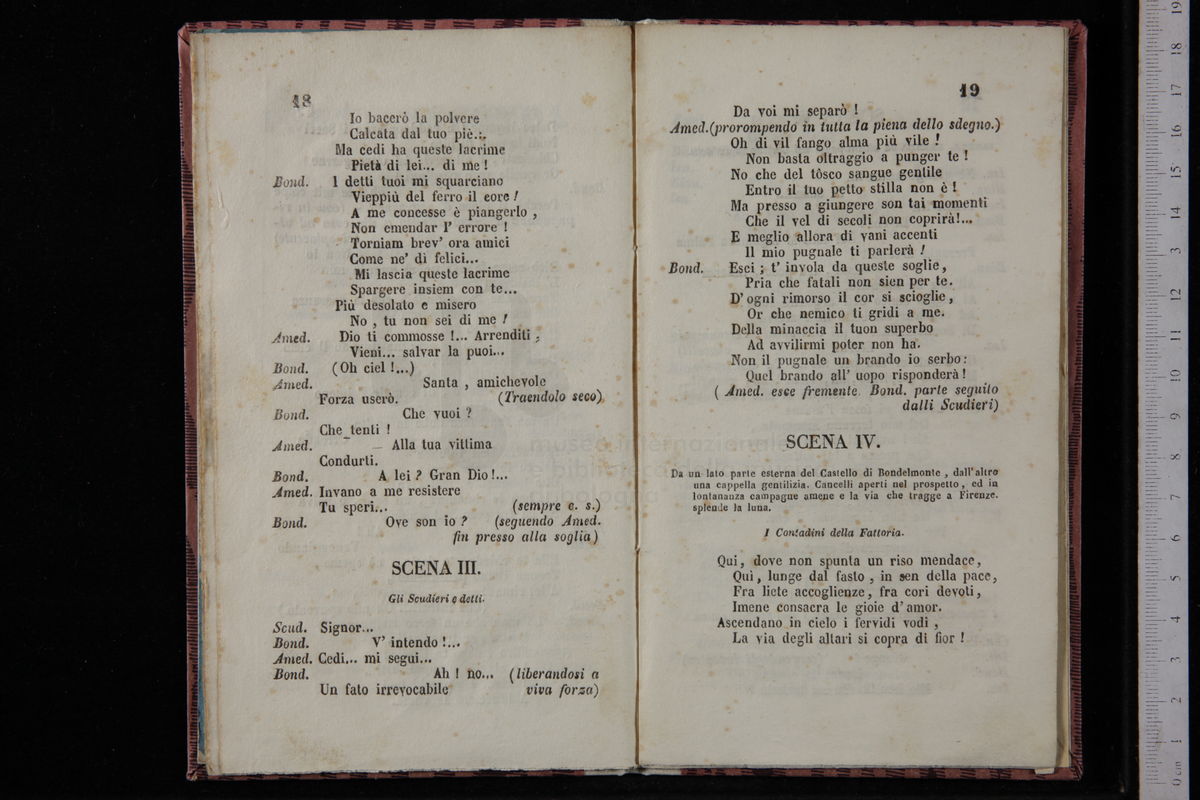 18
Io bacerò la polvere
Calcata dal tuo piè...
Ma cedi ha queste lacrime
Pietà di lei... di me !
Bond. I detti tuoi mi squarciano
Vieppiù del ferro il core !
A me concesse è piangerlo ,
Non emendar l' errore !
Torniam brev' ora amici
Come ne' dì felici...
Mi lascia queste lacrime
Spargere insiem con te...
Più desolato e misero
No , tu non sei di me !
Amed. Dio ti commosse !... Arrenditi ;
Vieni... salvar la puoi...
Bond. (Oh ciel !...)
Amed. Santa , amichevole
Forza userò. (Traendolo seco)
Bond. Che vuoi ?
Che tenti !
Amed. Alla tua vittima
Condurti.
Bond. A lei ? Gran Dio !...
Amed. Invano a me resistere
Tu speri... (sempre c. s.)
Bond. Ove son io ? (seguendo Amed.
fin presso alla soglia)
SCENA III.
Gli Scudieri e detti.
Scud. Signor...
Bond. V' intendo !...
Amed. Cedi... mi segui...
Bond. Ah ! no... (liberandosi a
Un fato irrevocabile viva forza)
19
Da voi mi separò !
Amed. (prorompendo in tutta la piena dello sdegno.)
Oh di vil fango alma più vile !
Non basta oltraggio a punger te !
No che del tôsco sangue gentile
Entro il tuo petto stilla non è !
Ma presso a giungere son tai momenti
Che il vel di secoli non coprirà!...
E meglio allora di vani accenti
Il mio pugnale ti parlerà !
Bond. Esci ; t' invola da queste soglie ,
Pria che fatali non sien per te.
D' ogni rimorso il cor si scioglie ,
Or che nemico ti gridi a me.
Della minaccia il tuon superbo
Ad avvilirmi poter non ha.
Non il pugnale un brando io serbo :
Quel brando all' uopo risponderà !
( Amed. esce fremente. Bond. parte seguito
dalli Scudieri)
SCENA IV.
Da un lato parte esterna del Castello di Bondelmonte , dall' altro
una cappella gentilizia. Cancelli aperti nel prospetto , ed in
lontananza campagne amene e la via che tragge a Firenze.
splende la luna.
I Contadini della Fattoria.
Qui , dove non spunta un riso mendace,
Qui , lunge dal fasto , in sen della pace,
Fra liete accoglienze , fra cori devoti,
Imene consacra le gioie d' amor.
Ascendano in cielo i fervidi vodi ,
La via degli altari si copra di fior !
museo internazionale
e biblioteca